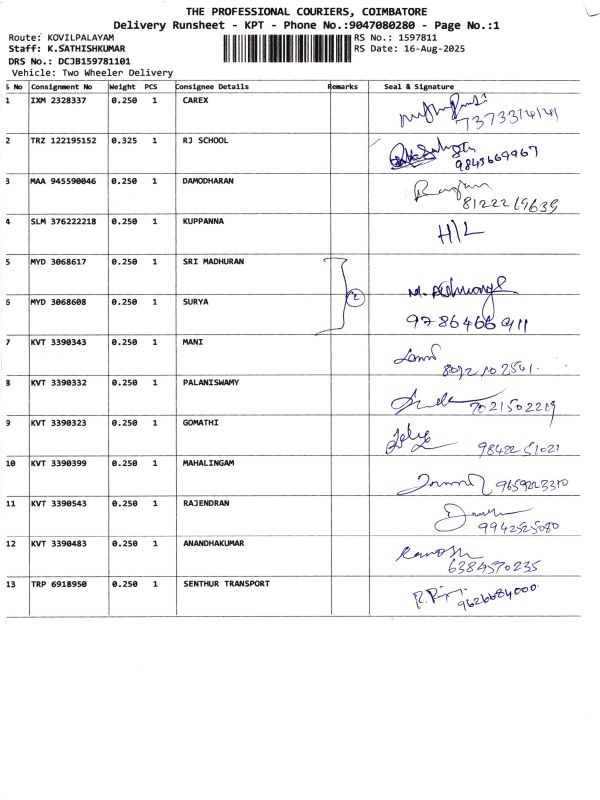 THE PROFESSIONAL COURIERS, COIMBATORE
Delivery Runsheet - KPT - Phone No.:9047080280 - Page No.:1
Route: KOVILPALAYAM RS No.: 1597811
Staff: K.SATHISHKUMAR RS Date: 16-Aug-2025
DRS No.: DCJB159781101
Vehicle: Two Wheeler Delivery
S No Consignment No Weight PCS Consignee Details Remarks Seal & Signature
1 IXM 2328337 0.250 1 CAREX
7373314141
2 TRZ 122195152 0.325 1 RJ SCHOOL
9843669967
3 MAA 945590046 0.250 1 DAMODHARAN
8122219639
4 SLM 376222218 0.250 1 KUPPANNA H/L
5 MYD 3068617 0.250 1 SRI MADHURAN
2
6 MYD 3068608 0.250 1 SURYA
9786466911
7 KVT 3390343 0.250 1 MANI
8 KVT 3390332 0.250 1 PALANISWAMY
7021502219
9 KVT 3390323 0.250 1 GOMATHI
9842251021
10 KVT 3390399 0.250 1 MAHALINGAM
9659223310
11 KVT 3390543 0.250 1 RAJENDRAN
9942525080
12 KVT 3390483 0.250 1 ANANDHAKUMAR
6384570235
13 TRP 6918950 0.250 1 SENTHUR TRANSPORT
9626684000